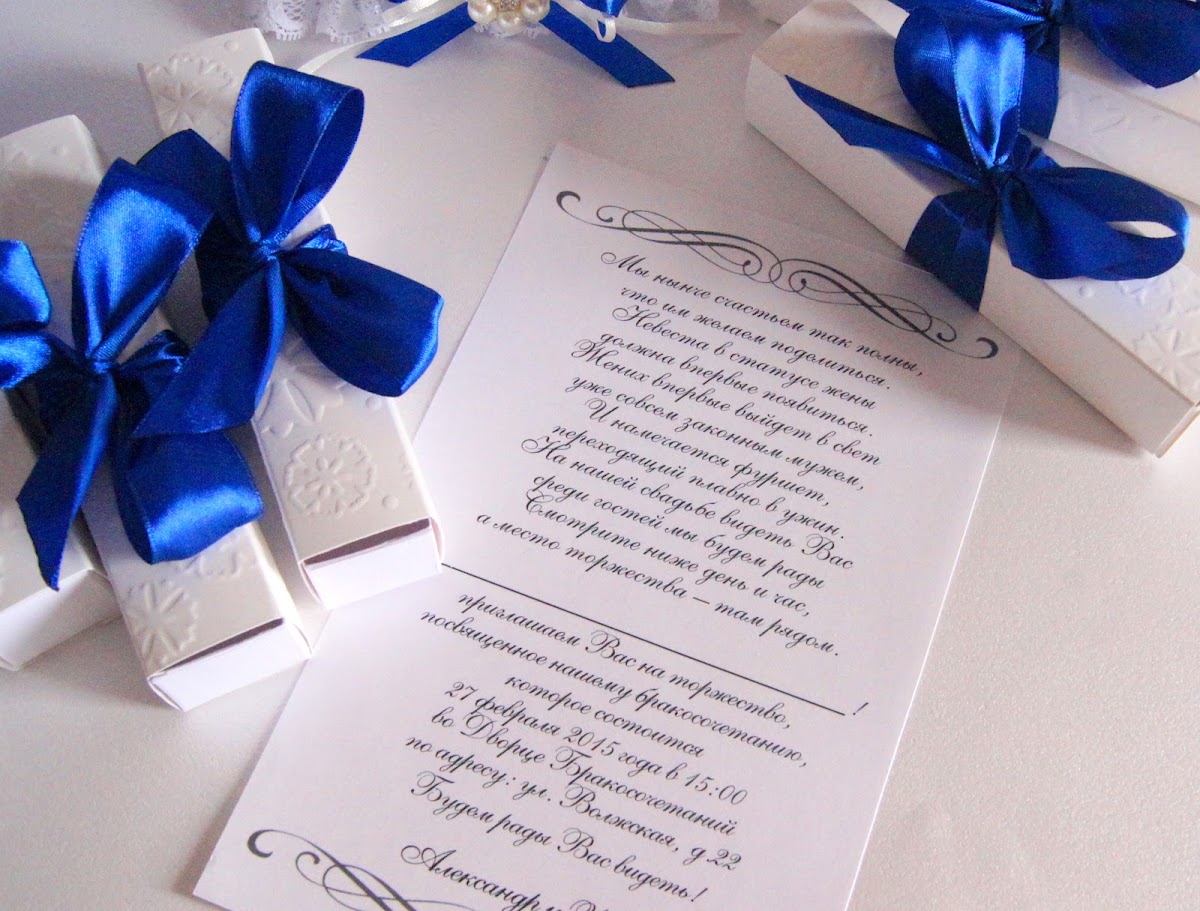 Мы нынче счастьем так полны,
что им желаем поделиться.
Невеста в статусе жены
должна впервые появиться.
Жених впервые выйдет в свет
уже совсем законным мужем,
И намечается фуршет,
переходящий плавно в ужин.
На нашей свадьбе видеть Вас
среди гостей мы будем рады
Смотрите ниже день и час,
а место торжества – там рядом.
!
приглашаем Вас на торжество,
посвященное нашему бракосочетанию,
которое состоится
27 февраля 2015 года в 15:00
во Дворце Бракосочетаний
по адресу: ул. Волжская, д 22
Будем рады Вас видеть!
Александр и